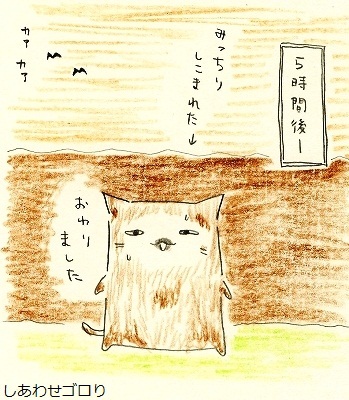 ５時間後ー
みっちり
しこまれた↓
カァ カァ
おわり
ました
しあわせゴロり